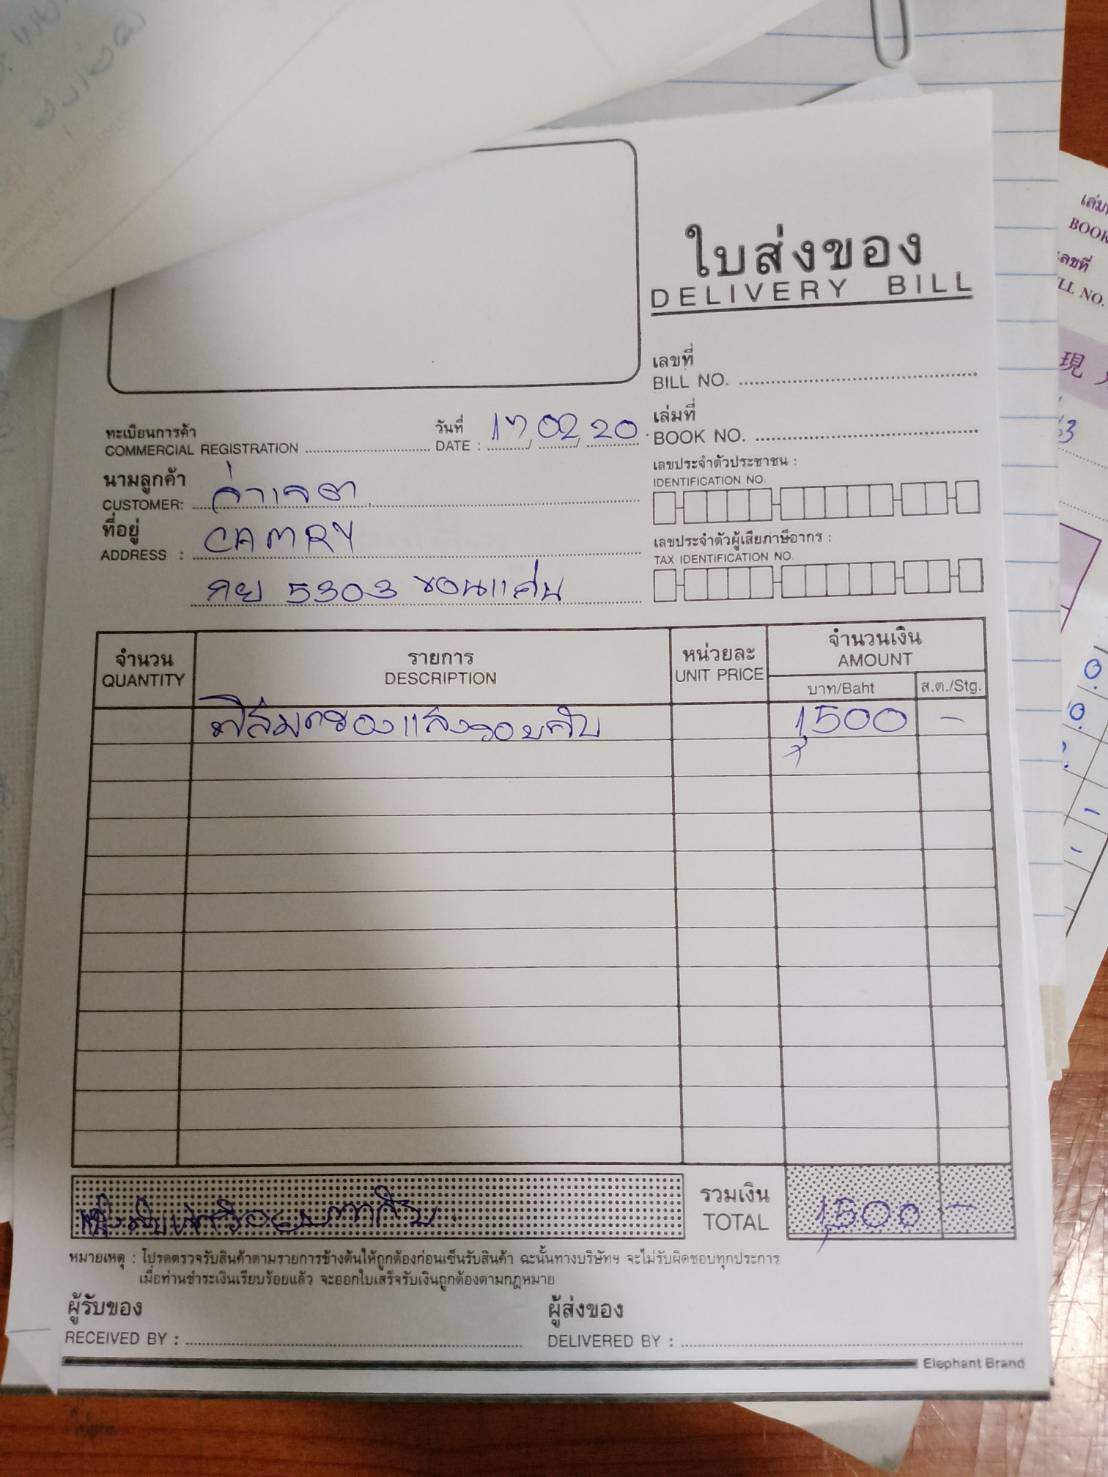 ใบส่งของ
DELIVERY BILL
เลขที่
BILL NO.
ทะเบียนการค้า
COMMERCIAL REGISTRATION
วันที่
DATE : 17/02/20
เล่มที่
BOOK NO.
นามลูกค้า
CUSTOMER:
ที่อยู่
ADDRESS : CAMRY
กย 5303 ขอนแก่น
เลขประจำตัวประชาชน :
IDENTIFICATION NO.
เลขประจำตัวผู้เสียภาษีอากร :
TAX IDENTIFICATION NO.
จำนวน
QUANTITY
รายการ
DESCRIPTION
หน่วยละ
UNIT PRICE
จำนวนเงิน
AMOUNT
บาท/Baht
ส.ต./Stg.
ฟิล์มกรองแสงรอบคัน 1,500 -
หนึ่งพันห้าร้อยบาทถ้วน
รวมเงิน
TOTAL
1,500 -
หมายเหตุ : โปรดตรวจรับสินค้าตามรายการข้างต้นให้ถูกต้องก่อนเซ็นรับสินค้า ฉะนั้นทางบริษัทฯ จะไม่รับผิดชอบทุกประการ
เมื่อท่านชำระเงินเรียบร้อยแล้ว จะออกใบเสร็จรับเงินถูกต้องตามกฎหมาย
ผู้รับของ
RECEIVED BY :
ผู้ส่งของ
DELIVERED BY :
Elephant Brand
เลขที่
現